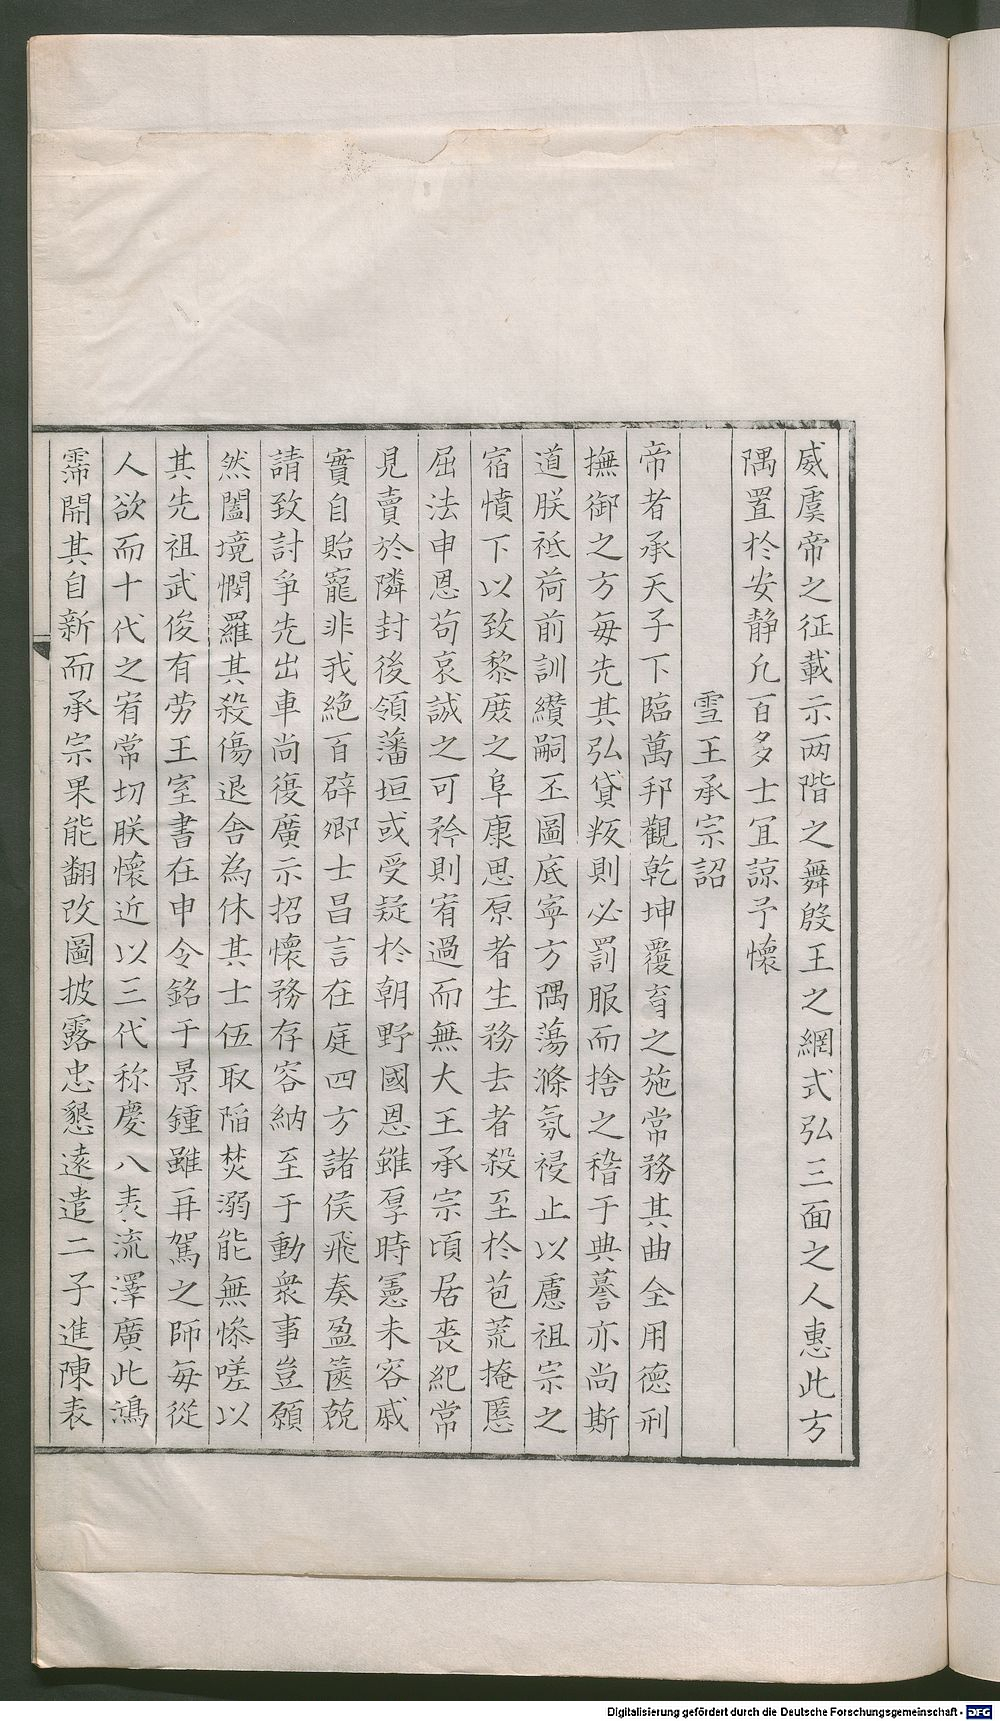 威虞帝之征載示两階之舞殷王之網式弘三面之人惠此方
隅置於安静凡百多士冝諒予懷
雪王承宗詔
帝者承天子下臨萬邦觀乾坤覆育之施常務其曲全用德刑
撫御之方毎先其弘貸叛則必罰服而捨之稽于典謩亦尚斯
道朕祗荷前訓纘嗣丕圖底寧方隅蕩滌氛祲止以慮祖宗之
宿憤下以致黎庻之阜康思原者生務去者殺至於苞荒掩慝
屈法申恩苟哀誠之可矜則宥過而無大王承宗頃居丧紀常
見賣於隣封後領藩垣或受疑於朝野國恩雖厚時憲未容戚
實自貽寵非我絶百辟卿士昌言在庭四方諸侯飛奏盈篋競
請致討爭先出車尚復廣示招懷務存容納至于動衆事豈願
然闔境憫羅其殺傷退舎為休其士伍取䧟焚溺能無慘嗟以
其先祖武俊有劳王室書在申令銘于景鍾雖再駕之師毎從
人欲而十代之宥常切朕懷近以三代称慶八表流澤廣此鴻
霈開其自新而承宗果能翻改圖披露忠懇逺遣二子進陳表
Digitalisierung gefördert durch die Deutsche Forschungsgemeinschaft - DFG